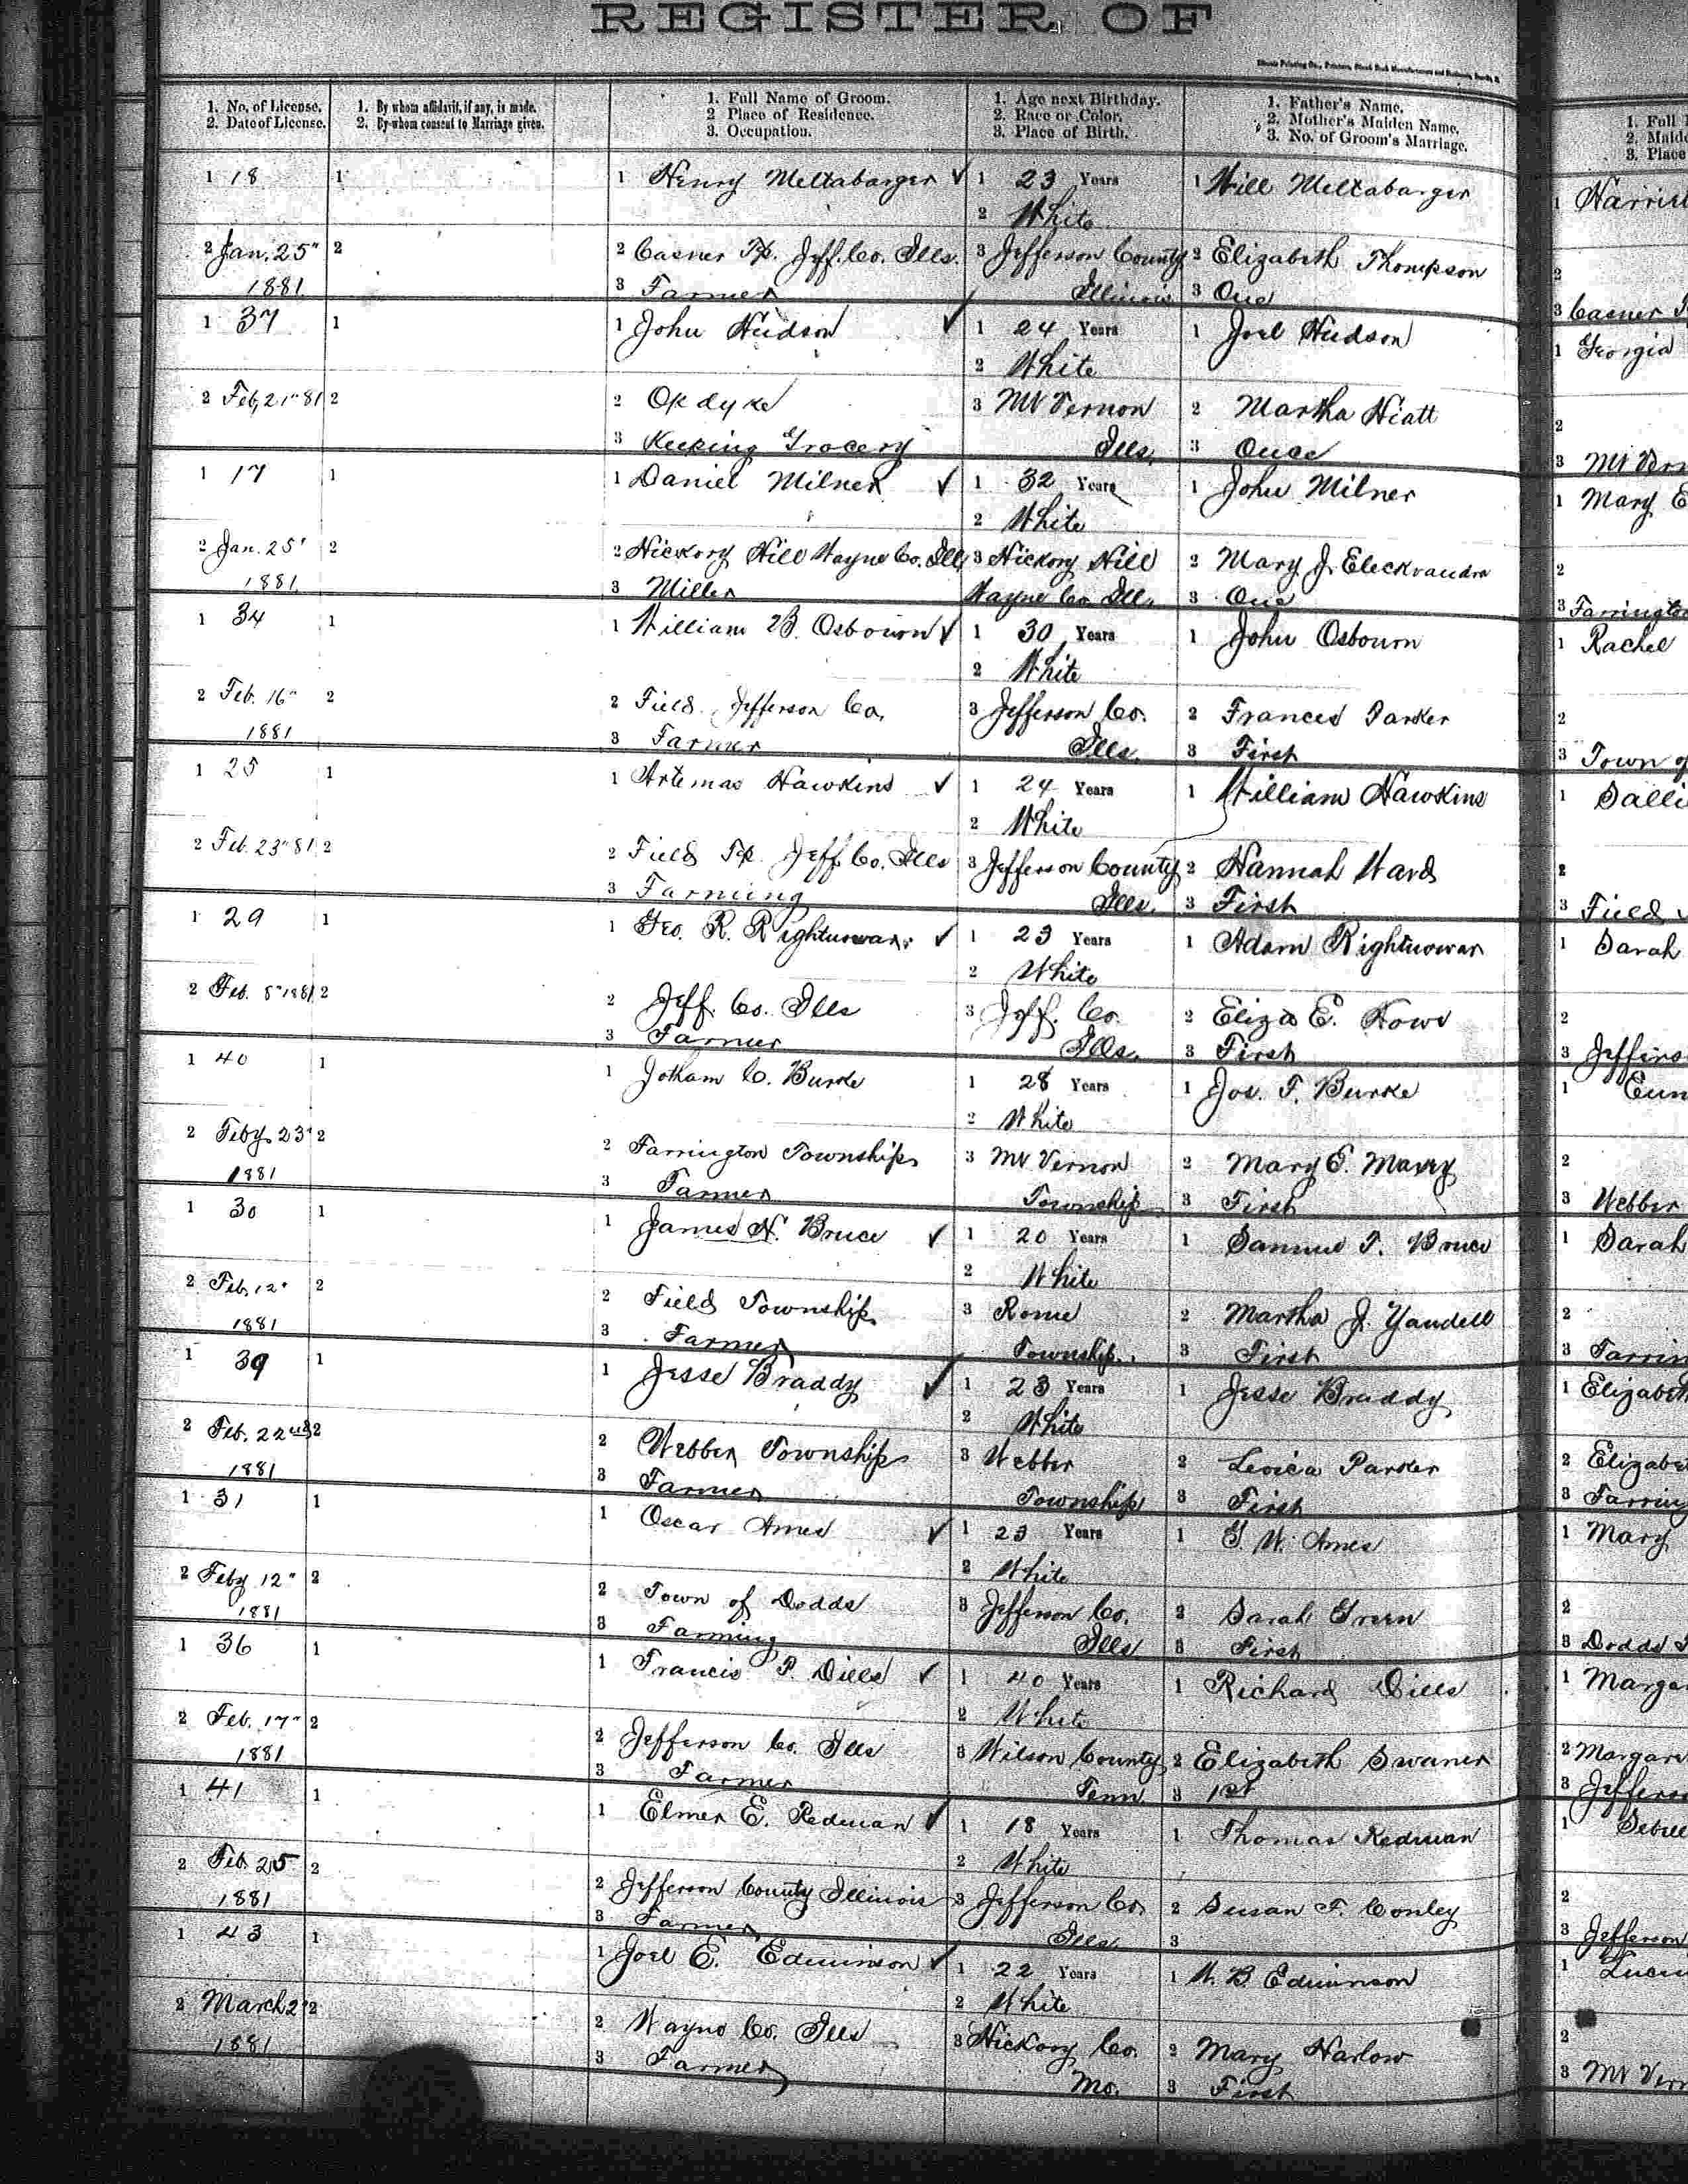 REGISTER OF
1. No. of License.
2. Date of License.
1. By whom affidavit, if any, is made.
2. By whom consent to Marriage given.
1. Full Name of Groom.
2 Place of Residence.
3. Occupation.
1. Age next Birthday.
2. Race or Color.
3. Place of Birth.
1. Father's Name.
2. Mother's Maiden Name.
3. No. of Groom's Marriage.
1 18 1 1 Henry Meltabarger ✓ 1 23 Years 1 Will Meltabarger
2 White
2 Jan. 25" 2 2 Casner Tp. Jeff. Co. Ills. 3 Jefferson County 2 Elizabeth Thompson
1881 3 Farmer Illinois 3 One
3 Casner
1 37 1 1 John Hudson ✓ 1 24 Years 1 Joel Hudson 1 Georgia
2 White
2 Feb. 21" 81 2 2 Opdyke 3 Mt Vernon 2 Martha Hiatt 2
3 Keeping Grocery Ills. 3 Once 3 Mt
1 17 1 1 Daniel Milner ✓ 1 32 Years 1 John Milner 1 Mary E
2 White
2 Jan. 25" 2 2 Hickory Hill Wayne Co. Ill 3 Hickory Hill 2 Mary J. 2
1881 3 Miller Wayne Co. Ill. 3 One 3 Farrington
1 34 1 1 William B. Osbourn ✓ 1 30 Years 1 John Osbourn 1 Rachel
2 White
2 Feb. 16" 2 2 Field Jefferson Co. 3 Jefferson Co. 2 Frances Parker 2
1881 3 Farmer Ills. 3 First 3 Town of
1 25 1 1 Artemas Hawkins ✓ 1 24 Years 1 William Hawkins 1
2 White
2 Feb. 23" 81 2 2 Field Tp. Jeff Co. Ills 3 Jefferson County 2 Hannah Ward 2
3 Farming Ills. 3 First 3 Field
1 29 1 1 Geo. R. Rightnowar ✓ 1 23 Years 1 Adam Rightnowar 1 Sarah
2 White
2 Feb. 8" 1881 2 2 Jeff. Co. Ills 3 Jeff. Co. 2 Eliza E. Howe 2
3 Farmer Ills. 3 First 3
1 40 1 1 Jotham C. Burke 1 28 Years 1 Jos. T. Burke 1
2 White
2 Feby 23" 2 2 Farrington Township 3 Mt Vernon 2 Mary E. 2
1881 3 Farmer Township 3 First 3 Webber
1 30 1 1 James N. Bruce ✓ 1 20 Years 1 Samuel T. Bruce 1 Sarah
2 White
2 Feb. 12" 2 2 Field Township 3 Rome 2 Martha J. Yandell 2
1881 3 Farmer Township. 3 First 3
1 39 1 1 Jesse Braddy ✓ 1 23 Years 1 Jesse Braddy 1
2 White
2 Feb. 22nd 2 2 Webber Township 3 Webber 2 Levica Parker 2
1881 3 Farmer Township 3 First 3
1 31 1 1 Oscar Ames ✓ 1 23 Years 1 G. W. Ames 1 Mary
2 White
2 Feby 12" 2 2 Town of Dodds 3 Jefferson Co. 2 Sarah Green 2
1881 3 Farming Ills 3 First 3 Dodds
1 36 1 1 Francis P. Dills ✓ 1 40 Years 1 Richard Dills 1
2 White
2 Feb. 17" 2 2 Jefferson Co. Ills 3 Wilson County 2 Elizabeth Swaner 2
1881 3 Farmer Tenn 3 1st 3
1 41 1 1 Elmer E. Redman ✓ 1 18 Years 1 Thomas Redman 1
2 White
2 Feb 25 2 2 Jefferson County Illinois 3 Jefferson Co. 2 Susan F. Conley 2
1881 3 Farmer Ills. 3 3 Jefferson
1 43 1 1 Joel E. Edminson ✓ 1 22 Years 1 W. B. Edminson 1
2 White
2 March 2" 2 2 Wayne Co. Ills 3 Hickory Co. 2 Mary Harlow 2
1881 3 Farmer Mo. 3 First 3 Mt